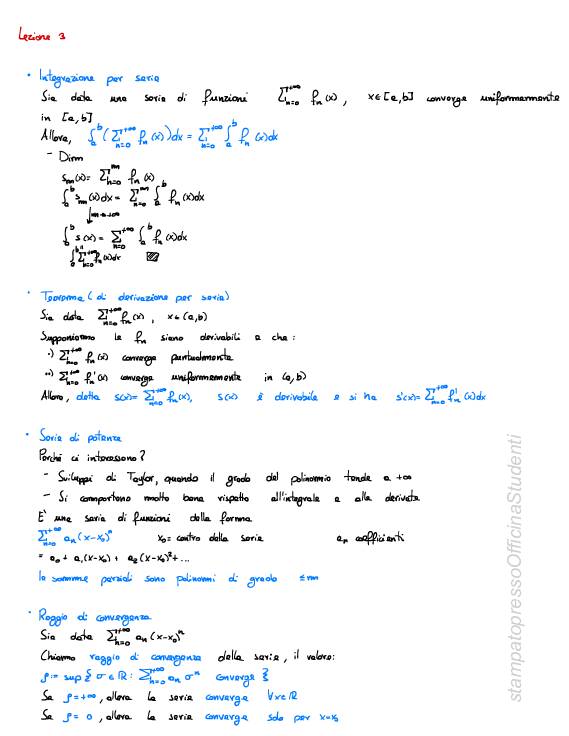 Lezione 3
• Integrazione per serie
Sia data una serie di funzioni ∑_{n=0}^{+∞} f_n(x), x∈[a,b] converge uniformemente
in [a,b]
Allora, ∫_a^b (∑_{n=0}^{+∞} f_n(x))dx = ∑_{n=0}^{+∞} ∫_a^b f_n(x)dx
- Dim
s_m(x) = ∑_{n=0}^{m} f_n(x)
∫_a^b s_m(x)dx = ∑_{n=0}^{m} ∫_a^b f_n(x)dx
↓m→+∞
∫_a^b s(x) = ∑_{n=0}^{+∞} ∫_a^b f_n(x)dx
∫_a^b ∑_{n=0}^{+∞} f_n(x)dx
• Teorema (di derivazione per serie)
Sia data ∑_{n=0}^{+∞} f_n(x), x∈(a,b)
Supponiamo le f_n siano derivabili e che:
•) ∑_{n=0}^{+∞} f_n(x) converge puntualmente
••) ∑_{n=0}^{+∞} f_n'(x) converge uniformemente in (a,b)
Allora, detta s(x)= ∑_{n=0}^{+∞} f_n(x), s(x) è derivabile e si ha s'(x)= ∑_{n=0}^{+∞} f_n'(x)dx
• Serie di potenze
Perché ci interessano?
- Sviluppi di Taylor, quando il grado del polinomio tende a +∞
- Si comportano molto bene rispetto all'integrale e alla derivata
E' una serie di funzioni della forma
∑_{n=0}^{+∞} a_n(x-x₀)^n x₀= centro della serie a_n coefficienti
= a₀ + a₁(x-x₀) + a₂(x-x₀)²+...
le somme parziali sono polinomi di grado ≤m
• Raggio di convergenza
Sia data ∑_{n=0}^{+∞} a_n(x-x₀)^n
Chiamo raggio di convergenza della serie, il valore:
ρ:= sup{σ∈ℝ: ∑_{n=0}^{+∞} a_n σ^n converge}
Se ρ=+∞, allora la serie converge ∀x∈ℝ
Se ρ= 0, allora la serie converge solo per x=x₀
stampatopressoOfficinaStudenti